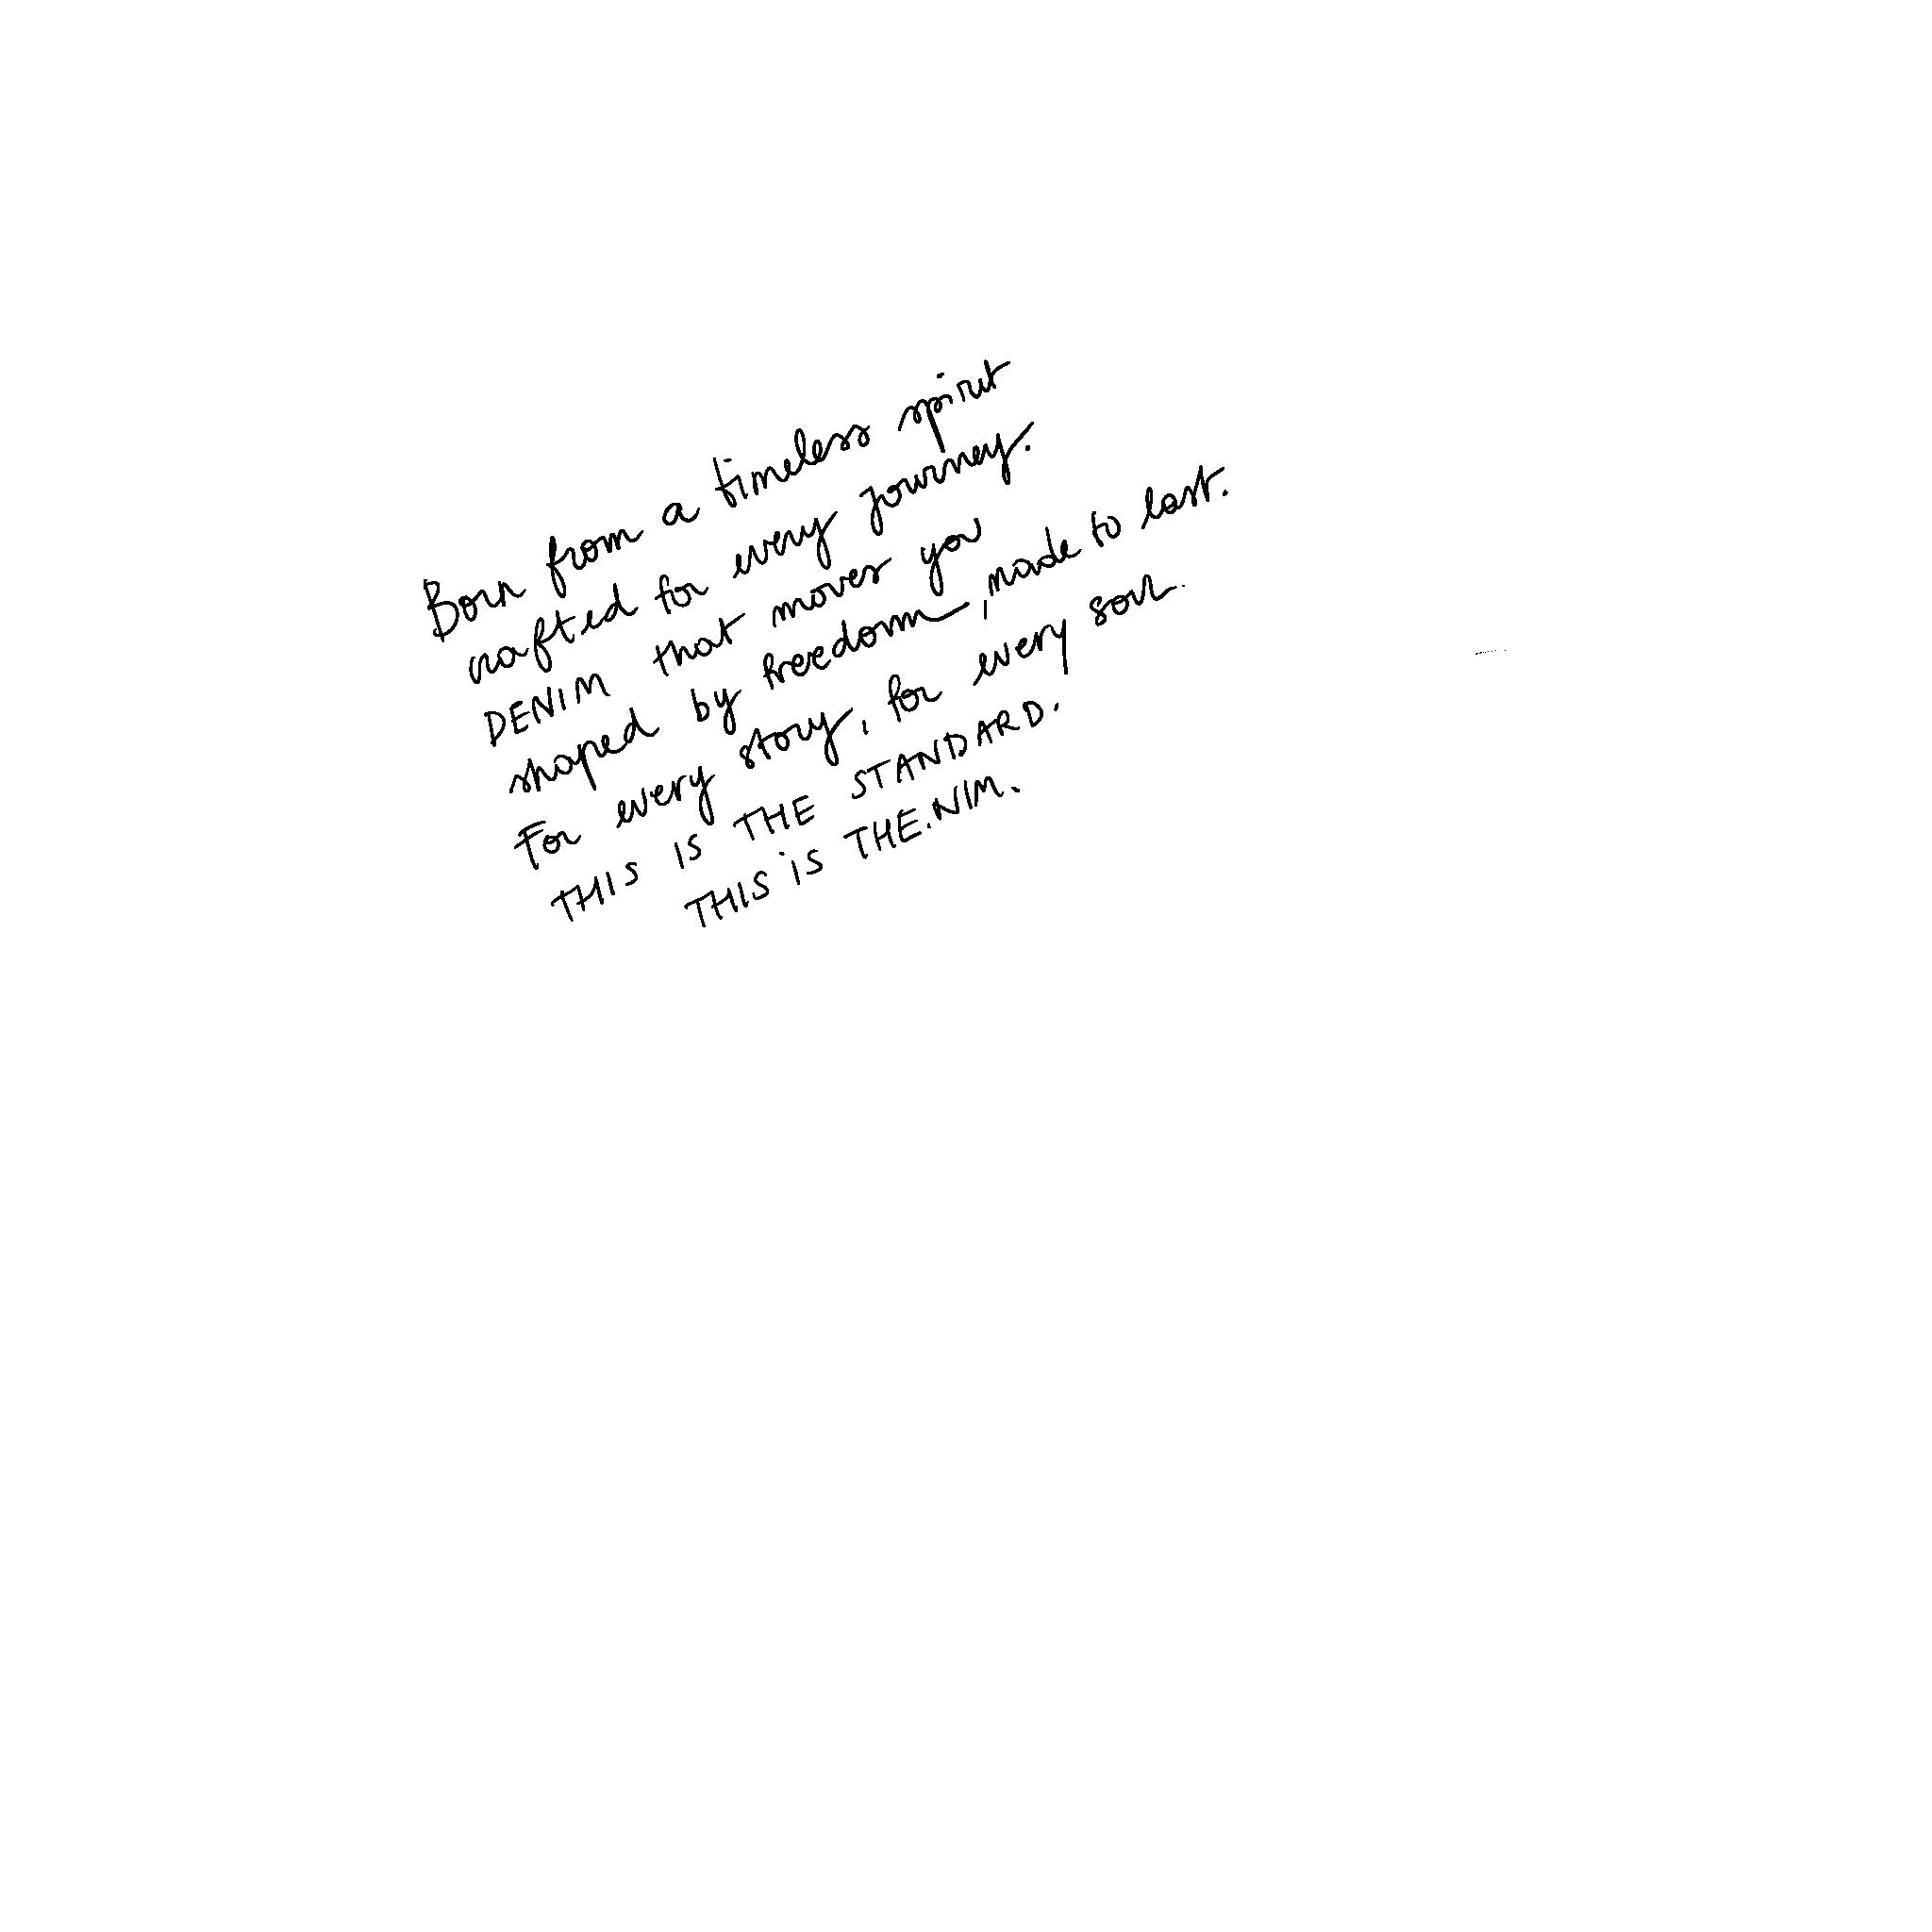 Born from a timeless spirit
crafted for every journey.
DENIM that moves you
shaped by freedom, made to last.
For every story, for every soul.
THIS IS THE STANDARD.
THIS is THE.NIM.